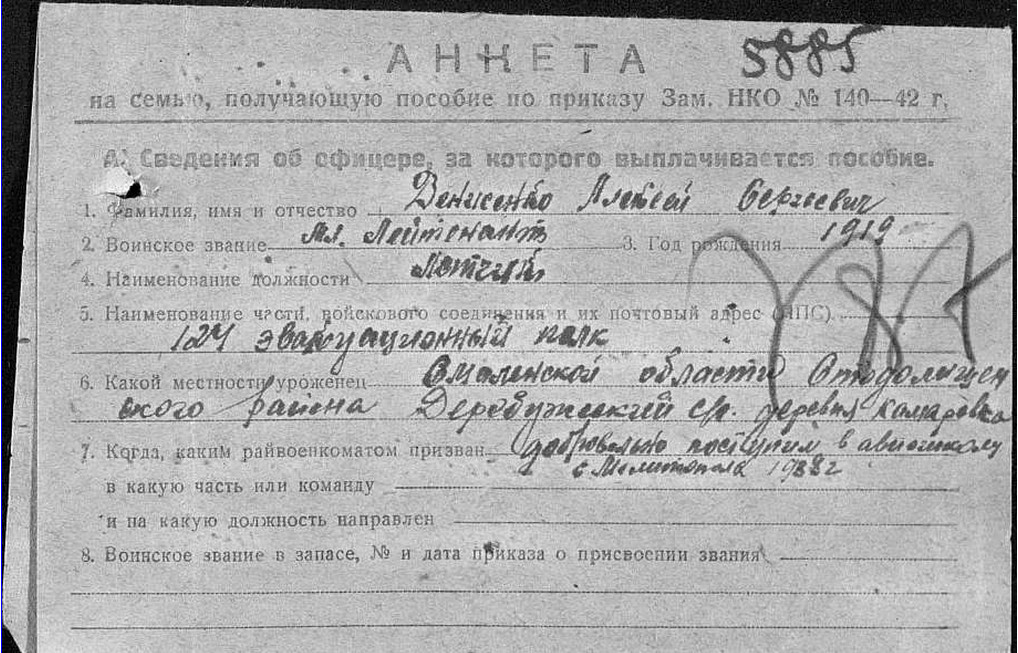 АНКЕТА 5885
на семью, получающую пособие по приказу Зам. НКО № 140—42 г,
А. Сведения об офицере, за которого выплачивается пособие.
1. Фамилия, имя и отчество Денисенко Алексей Сергеевич
2. Воинское звание Мл. Лейтенант 3. Год рождения 1919
4. Наименование должности Летчик
5. Наименование части, войскового соединения и их почтовый адрес (ППС)
124 эвакуационный полк
6. Какой местности уроженец Смоленской области Стодолищен
ского района Деребужский с/с. деревня Камаровка
7. Когда, каким райвоенкоматом призван добровольно поступил в авиашколу
г Мелитополя 1938 г
в какую часть или команду
и на какую должность направлен
8. Воинское звание в запасе, № и дата приказа о присвоении звания